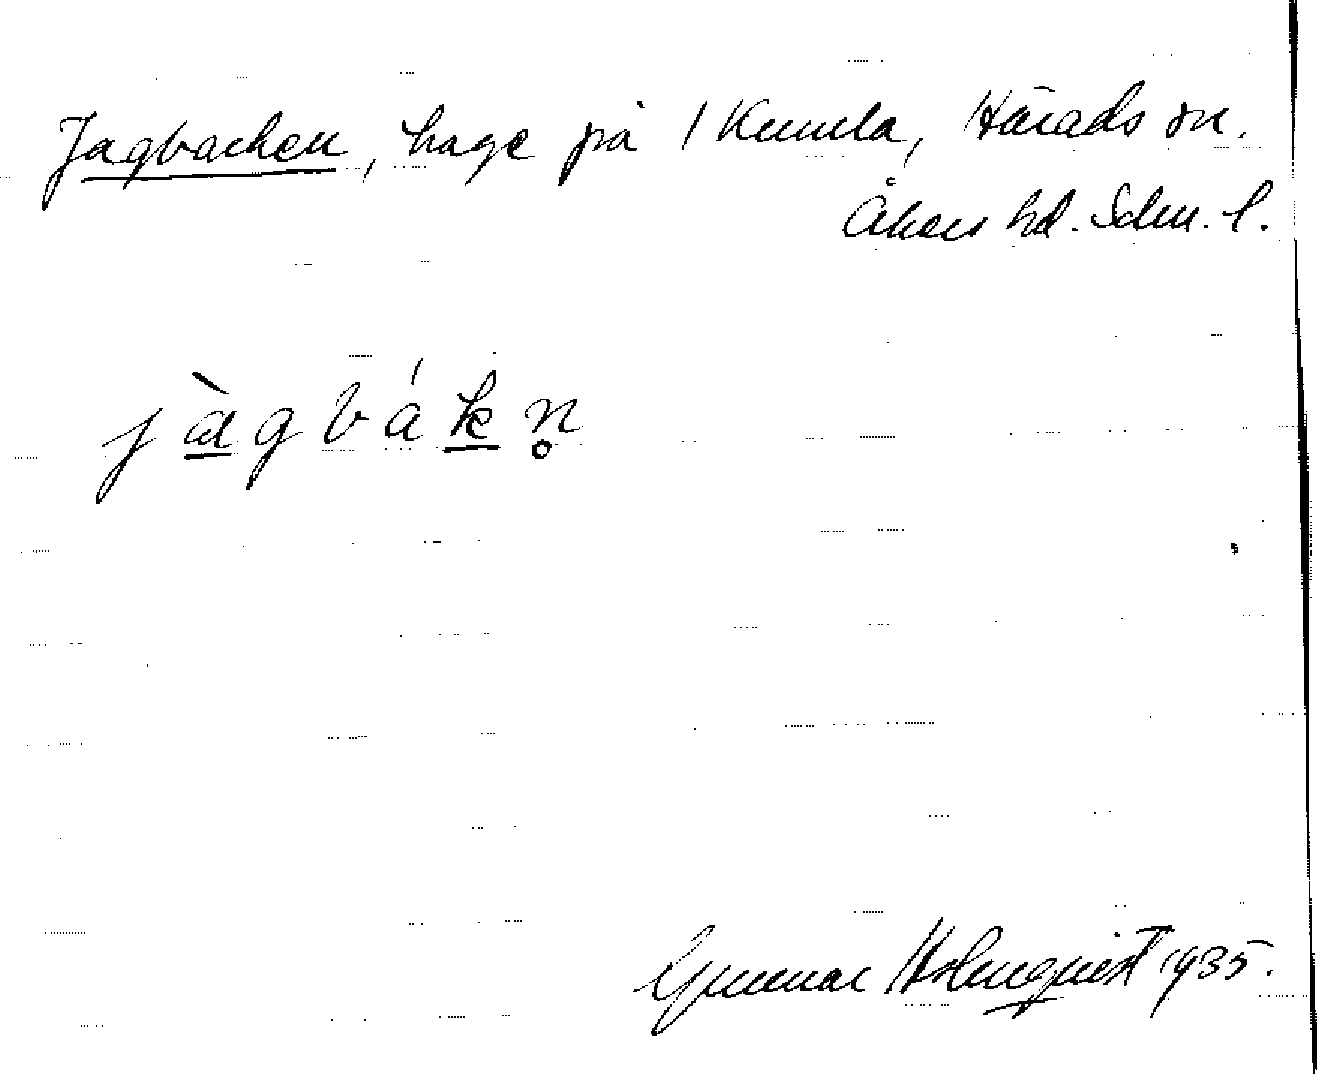 Jagbacken, hage på 1 Kumla, Härads sn.
Åkers hd. Sdm. l.
jàgbákn̥
Gunnar Holmquist 1935.